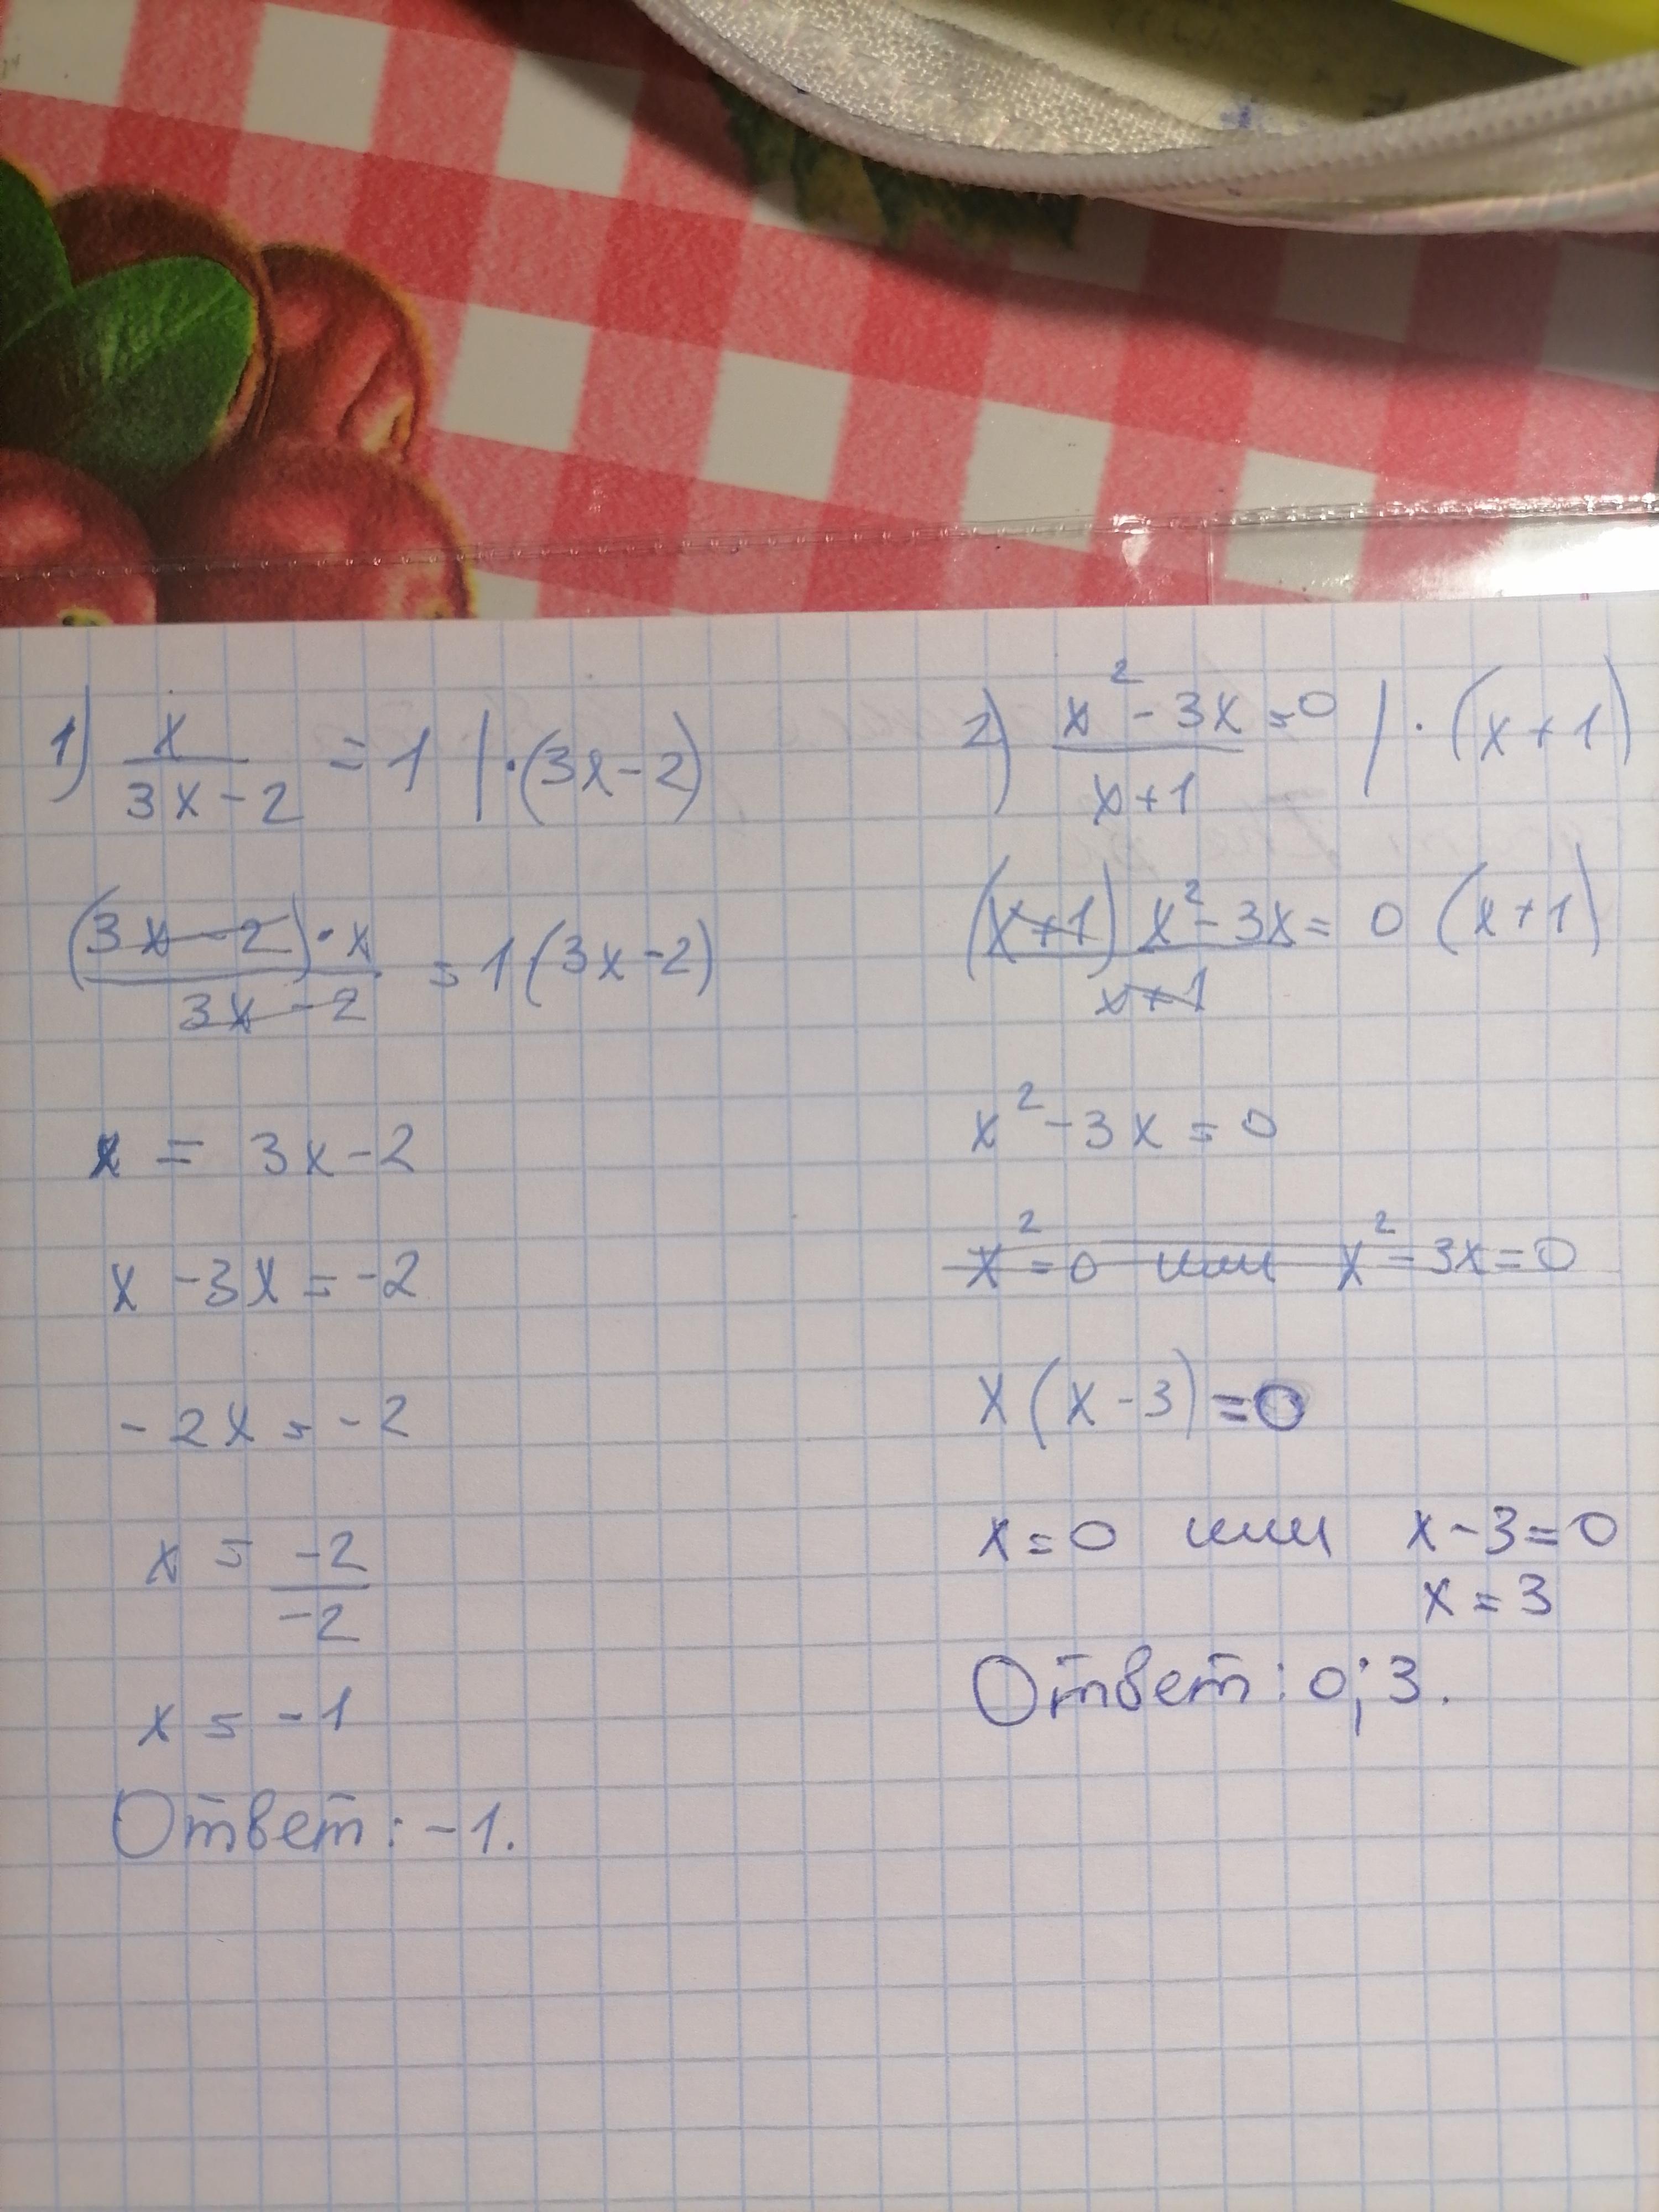 1) x/(3x-2) = 1 | ·(3x-2)
((3x-2)·x)/(3x-2) = 1(3x-2)
x = 3x-2
x -3x = -2
-2x = -2
x = -2/-2
x = -1
Ответ: -1.
2) (x²-3x)/(x+1) = 0 | · (x+1)
((x+1) x²-3x)/(x+1) = 0 (x+1)
x²-3x = 0
x²=0 или x²-3x=0
x(x-3)=0
x=0 или x-3=0
x=3
Ответ: 0;3.